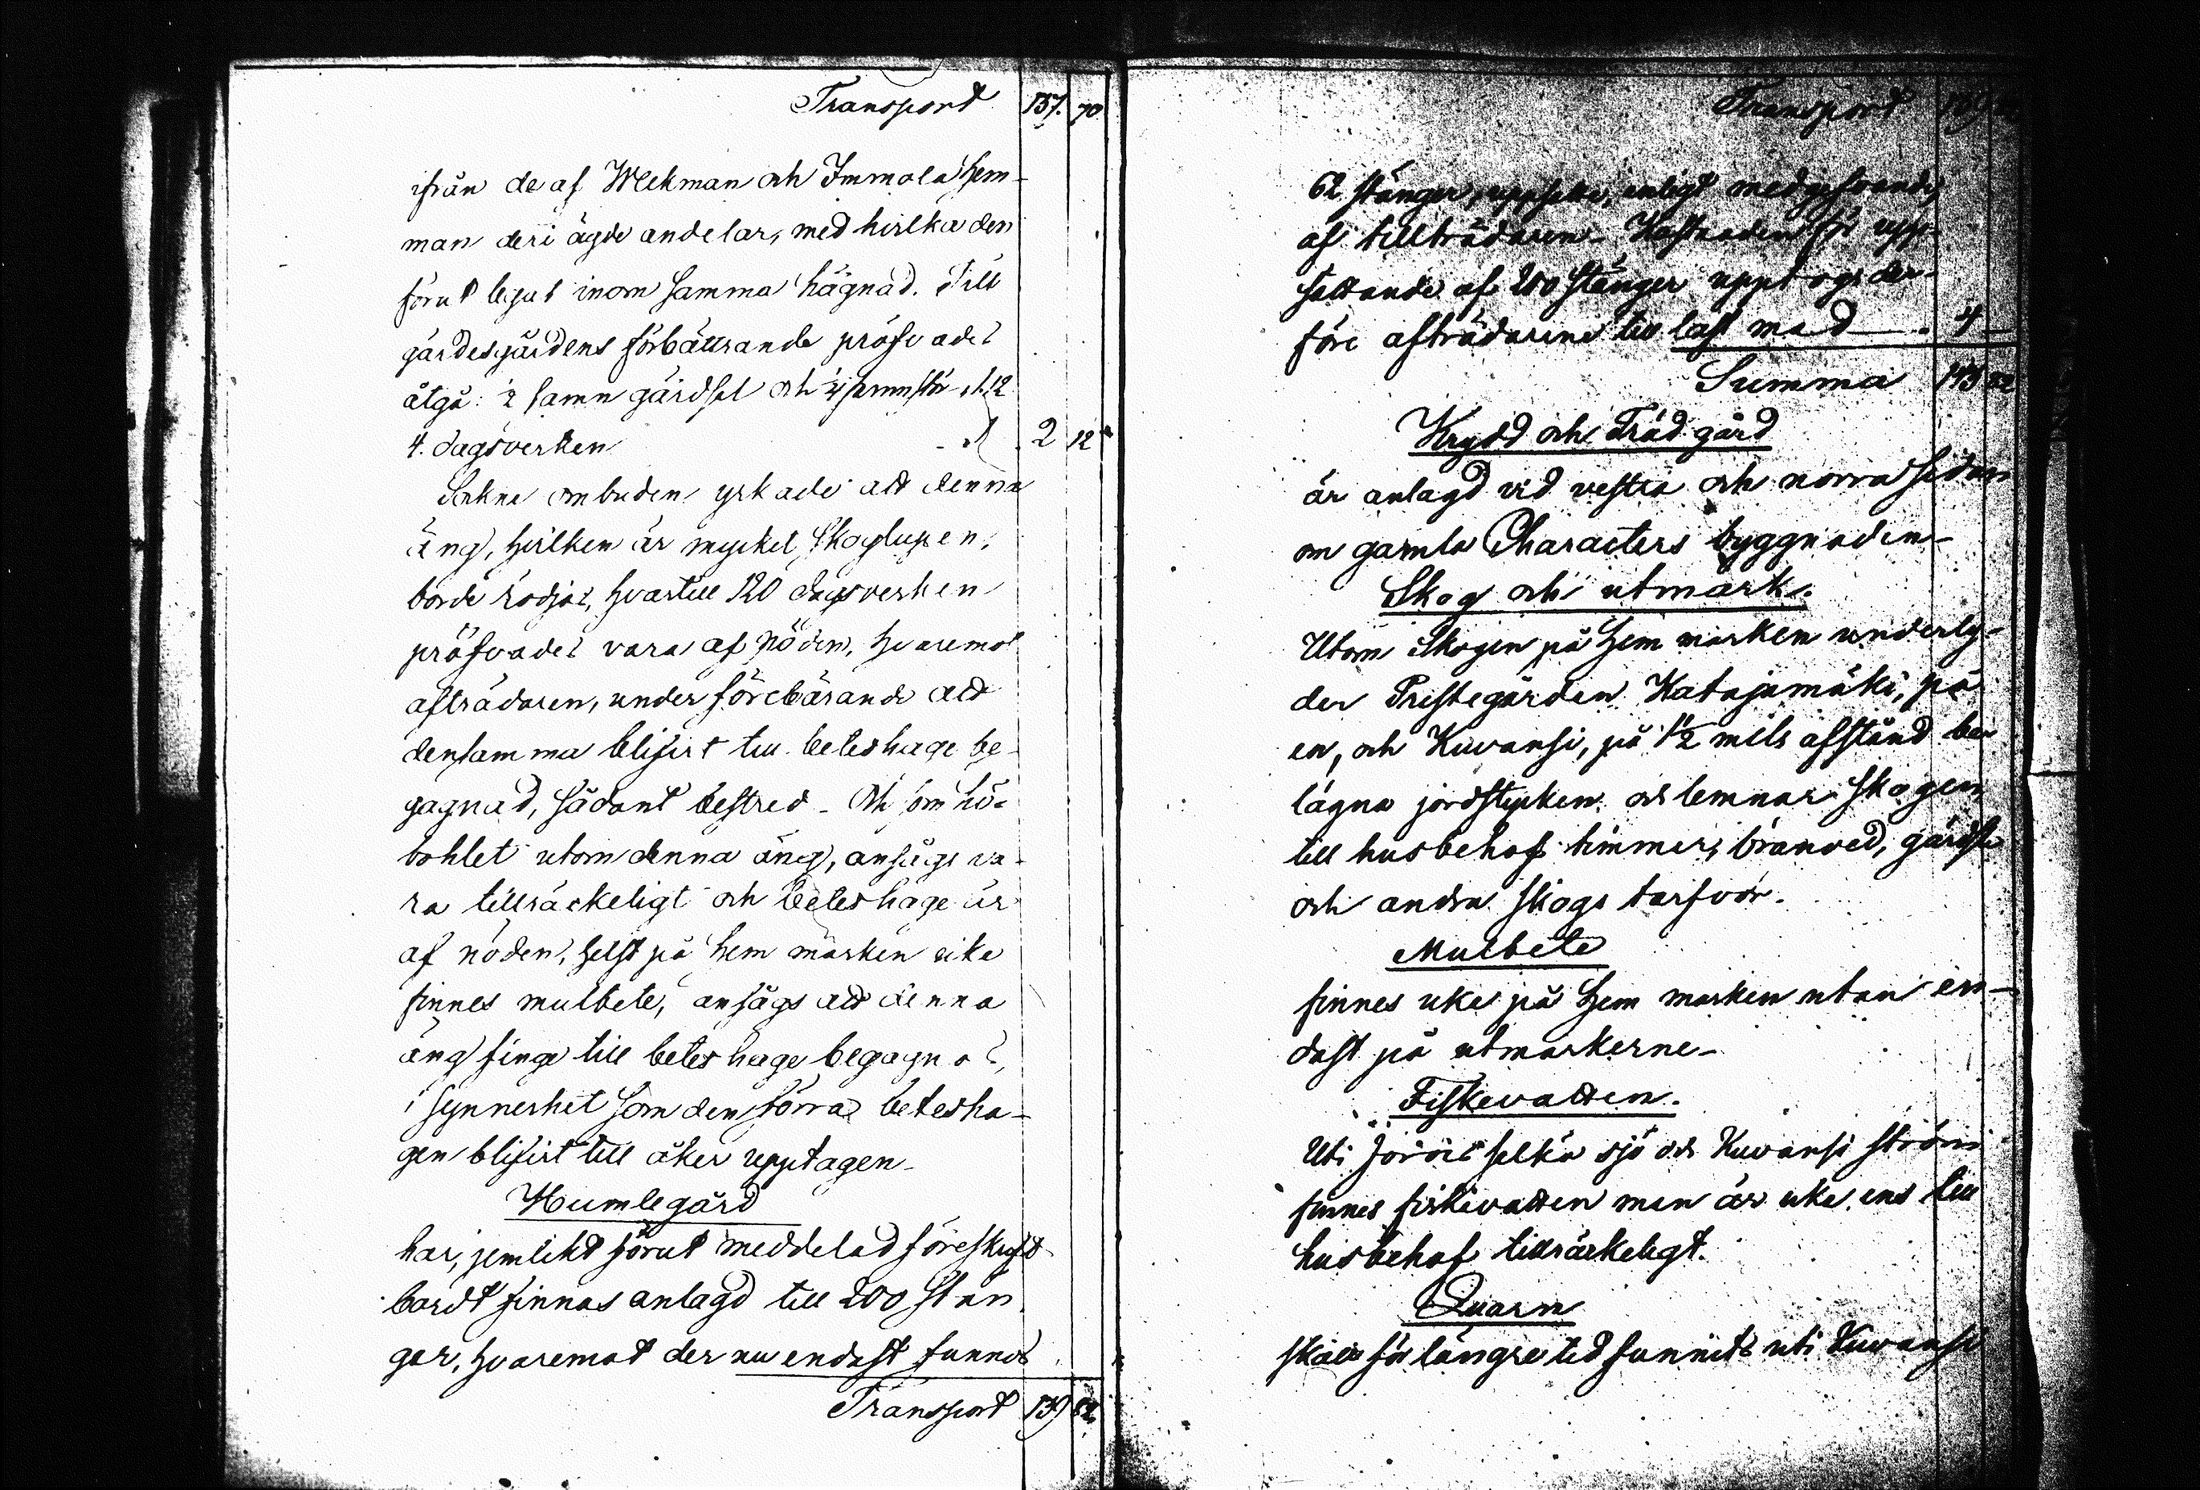 Transport 137. 70
ifrån de af Wekman och Immola hem-
man deri ägde andelar, med hvilka den
förut legat inom samma hägnad. Till
gärdesgårdens förbättrande pröfvades
åtgå: 2 famn gärdsel och
4. dagsverken 2 12
Sokne ombuden yrkade att denna
äng, hvilken är mycket skoglupen,
borde rödjas, hvartill 120 dagsverken
pröfvades vara af nöden, hvaremot
afträdaren, under förebärande att
densamma blifvit till beteshage be-
gagnad, sådant bestred. Och som hö-
bohlet utom denna äng, ansågs va-
ra tillräckeligt och beteshage är
af nöden, helst på hem marken icke
finnes mulbete, ansågs att denna
äng finge till beteshage begagnas,
i synnerhet som den förra betesha-
gen blifvit till åker upptagen.
Humlegård
har, jemlikt förut meddelad föreskrift
bordt finnas anlagd till 200 stän
ger, hvaremot der nu endast funnos
Transport 139 82
Transport 139 82
62 stänger, uppsatte, enligt medgifvande
af tillträdaren. Kostnaden för upp-
sättande af 200 stänger upptogs der-
före afträdarene till last med 4
Summa 143 82
Krydd och Trädgård
är anlagd vid vestra och norra sidan
om gamla Characters byggnaden-
Skog och utmark.
Utom Skogen på hem marken underly-
der Prestegården Katajamäki, på
en, och Kuvansi, på 1½ mils afstånd be-
lägna jordstycken och lemnar skogen
till husbehof timmer, bränved, gärdsel
och andra skogs tarfvor.
Mulbete
finnes icke på hem marken utan en-
dast på utmarkerne-
Fiskevatten.
Uti Jorois selkä sjö och Kuvansi ström
finnes fiskevatten men är icke ens till
husbehof tillräckeligt.
Quarn
skall för längre tid funnits uti Kuvansi